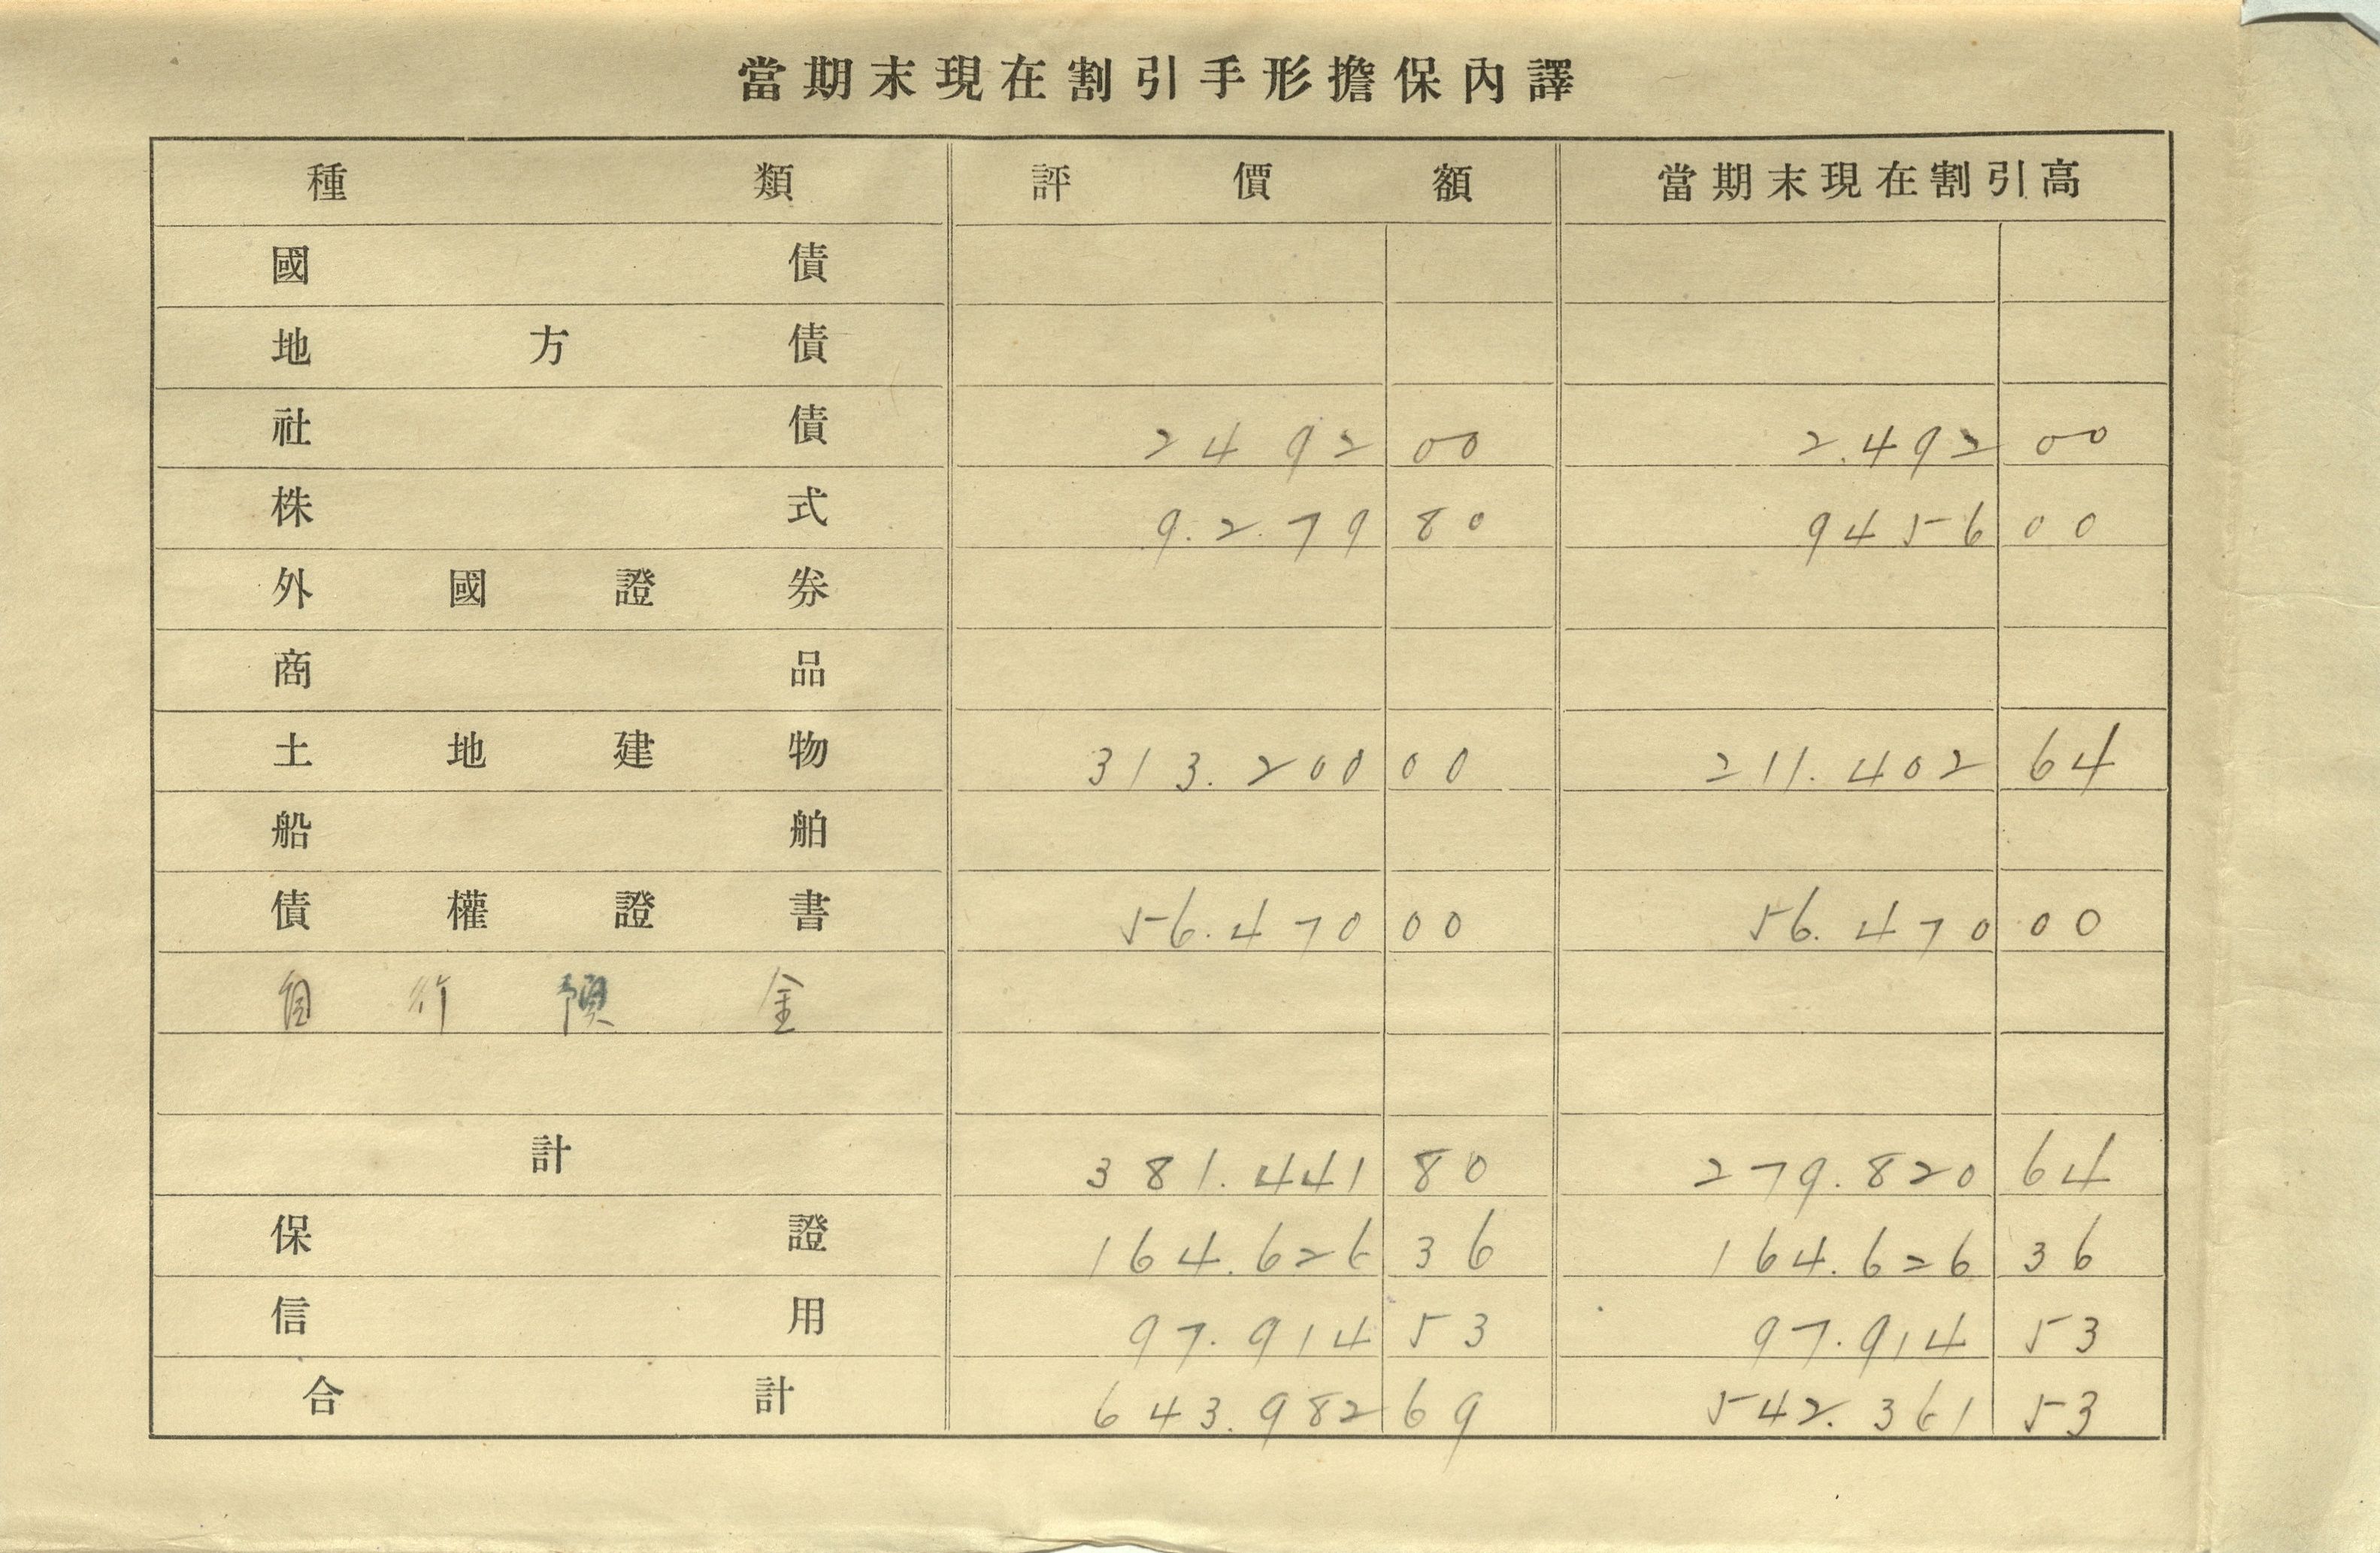 當期末現在割引手形擔保內譯
種類 評價額 當期末現在割引高
國債
地方債
社債 2492 00 2.492 00
株式 9.2.79 80 9456 00
外國證券
商品
土地建物 313.200 00 211.402 64
船舶
債權證書 56.470 00 56.470 00
自行預金
計 381.441 80 279.820 64
保證 164.626 36 164.626 36
信用 97.914 53 97.914 53
合計 643.982 69 542.361 53